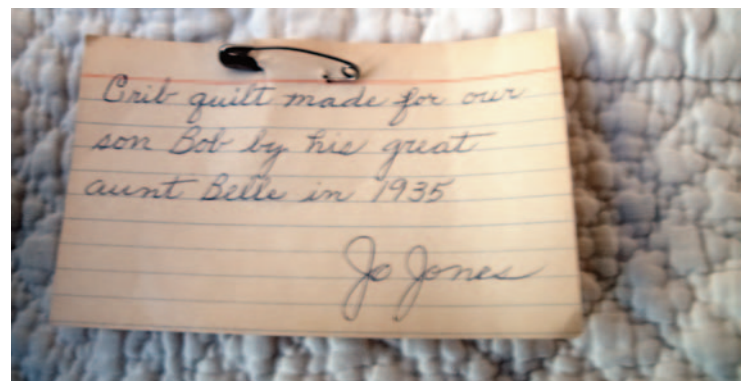 Crib quilt made for our
son Bob by his great
aunt Belle in 1935
Jo Jones